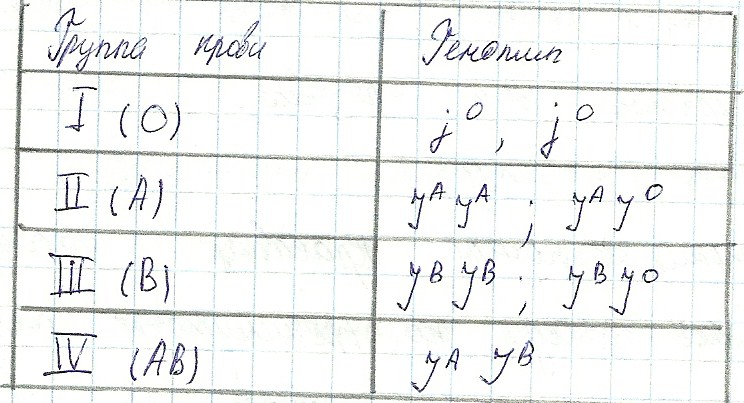 Группа крови Генотип
I (O) j⁰, j⁰
II (A) yᴬ yᴬ ; yᴬ y⁰
III (B) yᴮ yᴮ ; yᴮ y⁰
IV (AB) yᴬ yᴮ